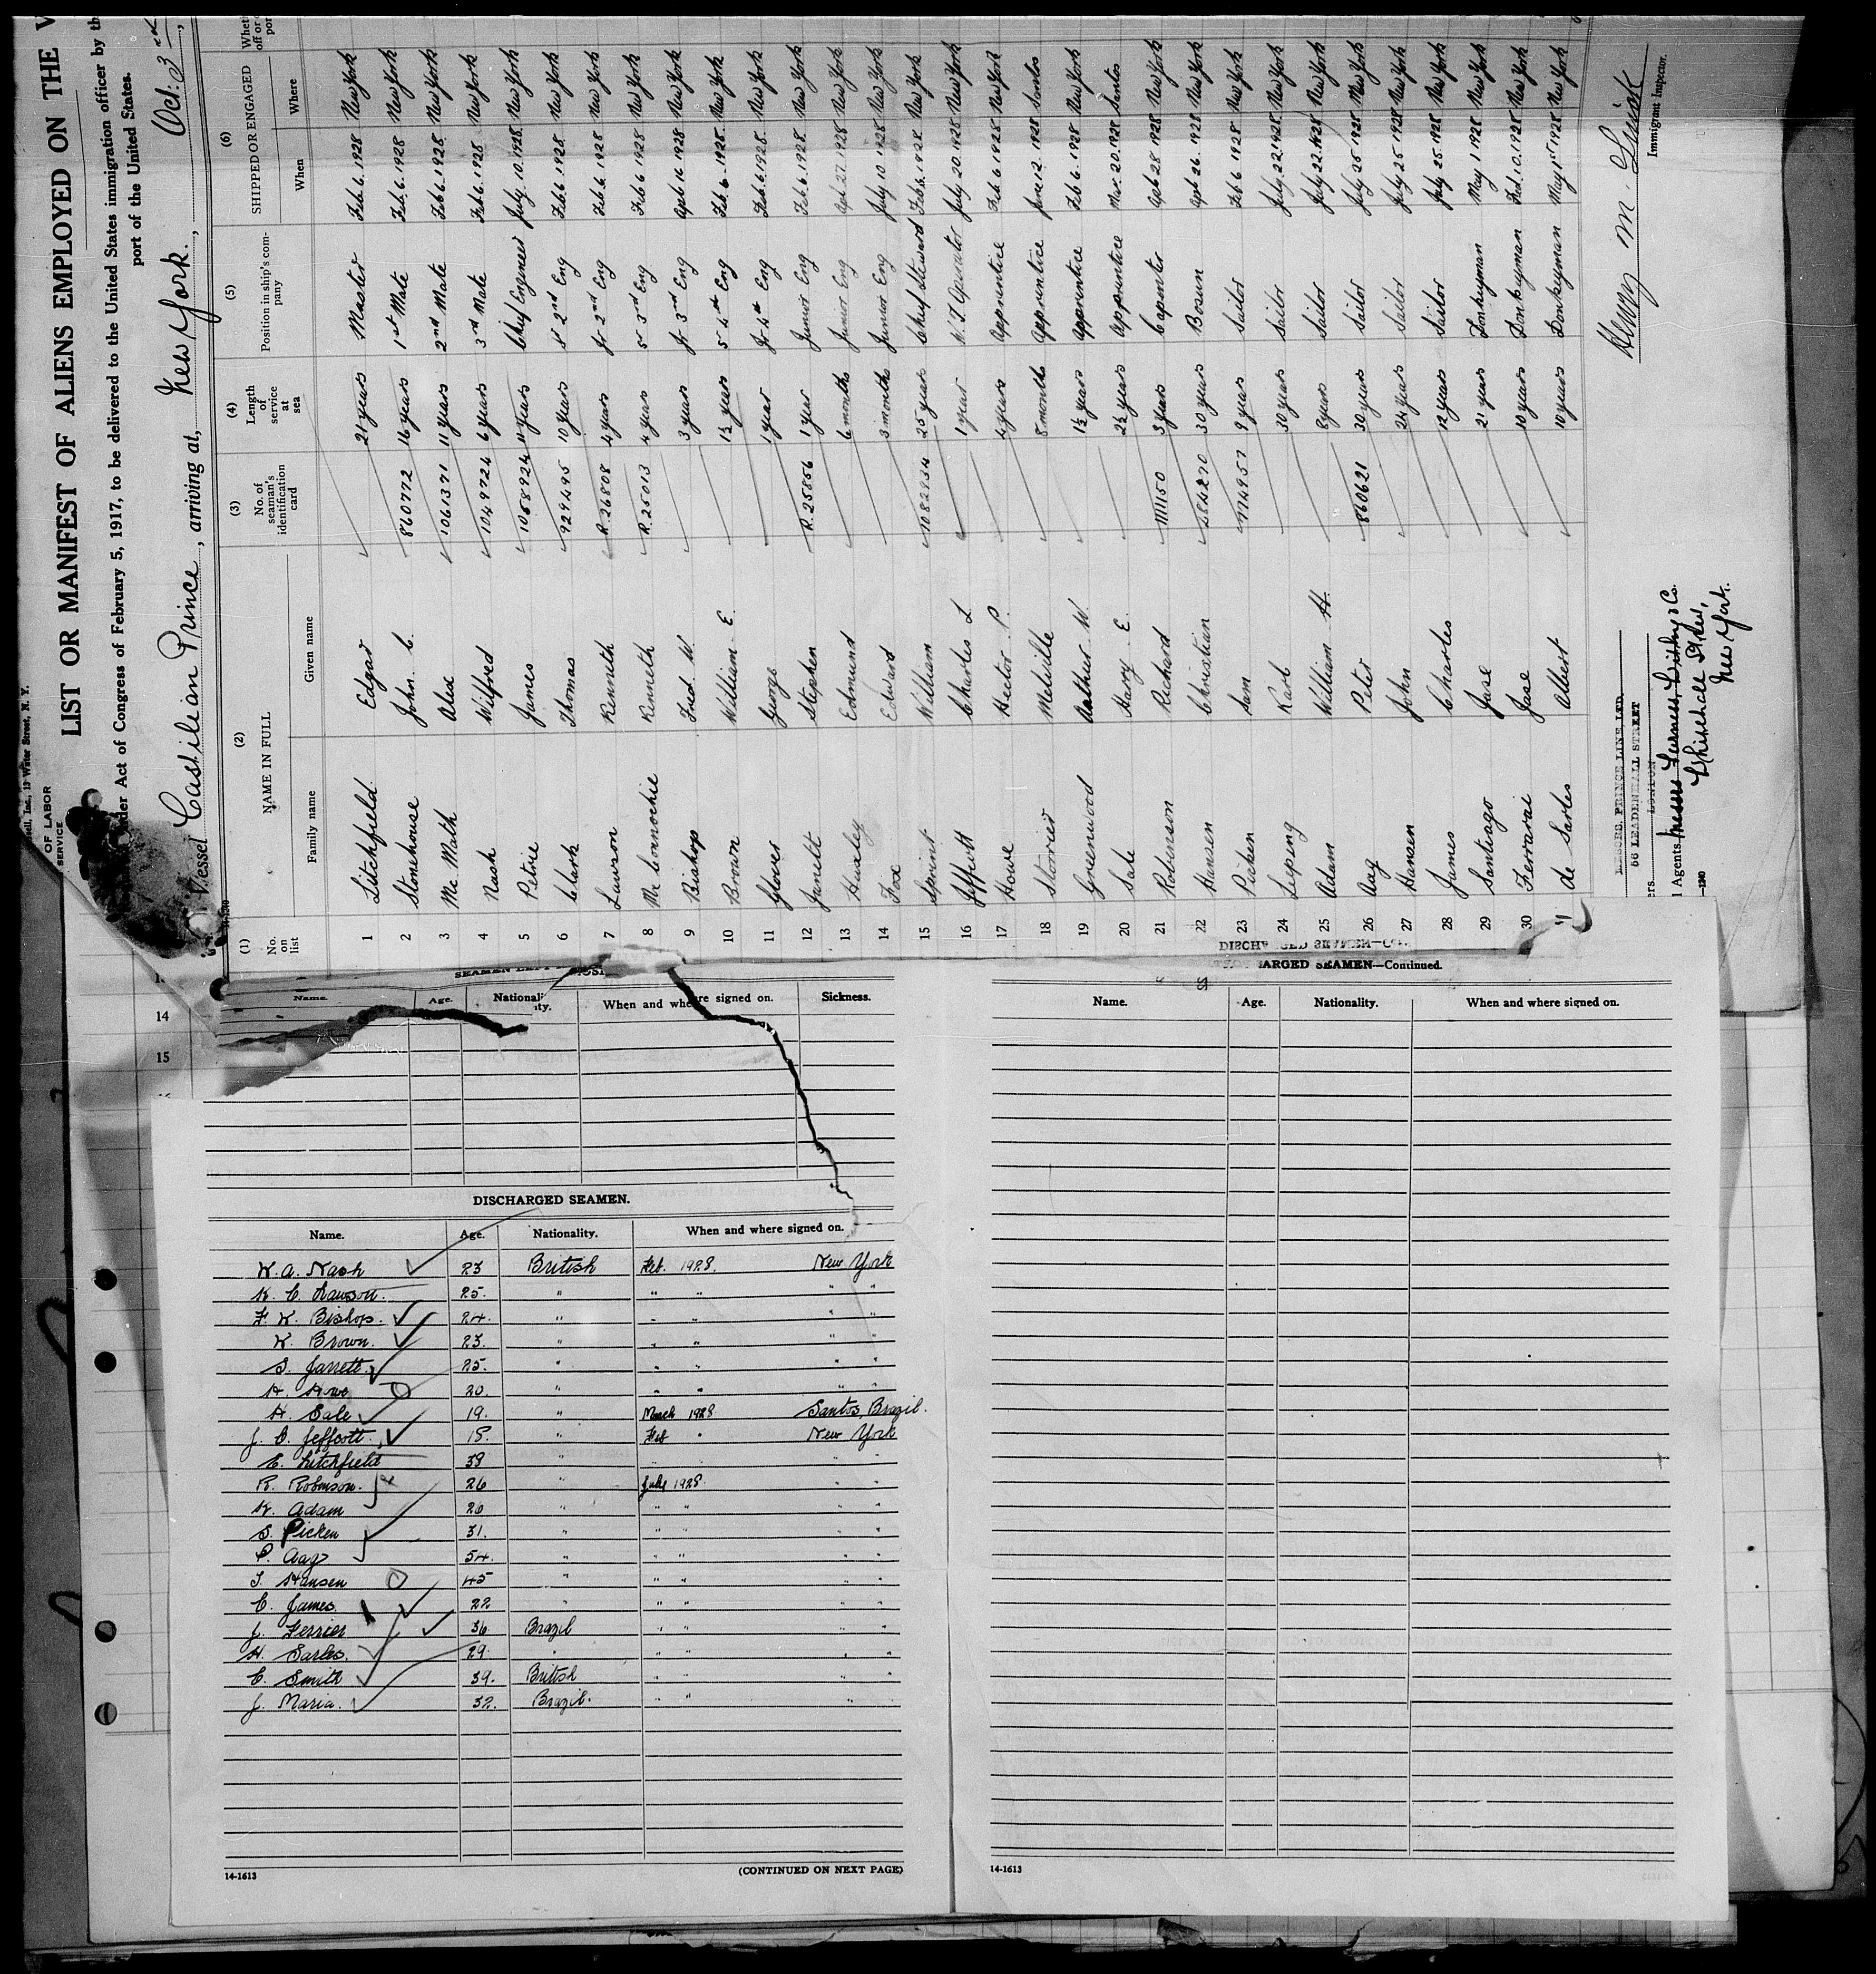 sell, Inc., 13 Water Street, N. Y.
OF LABOR
SERVICE
LIST OR MANIFEST OF ALIENS EMPLOYED ON THE V
der Act of Congress of February 5, 1917, to be delivered to the United States immigration officer by th
port of the United States.
Vessel Castilian Prince, arriving at, New York., Oct: 3rd,
(1) (2) (3) (4) (5) (6)
No. on list NAME IN FULL No. of seaman's identification card Length of service at sea Position in ship's company SHIPPED OR ENGAGED Wheth off or o por
Family name Given name When Where
1 Litchfield Edgar 21 years Master Feb. 6. 1928 New York
2 Stonehouse John. C. 860772 16 years 1st Mate Feb. 6. 1928 New York
3 Mc Math Alex 1061371 11 years 2nd Mate Feb 6. 1928 New York
4 Nash Wilfred 1049724 6 years 3rd Mate Feb. 6. 1928 New York
5 Petrie James 1058924 11 years Chief Engineer July. 10. 1928 New York
6 Clark Thomas 929495 10 years S 2nd Eng Feb. 6. 1928 New York
7 Lawson Kenneth R. 26808 4 years Jr 2nd Eng Feb. 6 1928 New York
8 Mc Connochie Kenneth R. 25013 4 years S 3rd Eng Feb 6 1928 New York
9 Bishop Fred. W. 3 years Jr 3rd Eng Apl 16 1928 New York
10 Brown William E. 1½ years S 4th Eng Feb. 6. 1928. New York
11 Glover George 1 year Jr 4th Eng Feb. 6 1928. New York
12 Jarrett Stephen R. 25856 1 year Junior Eng Feb 6. 1928 New York
13 Huxley Edmund 6 months Junior Eng Apl. 27. 1928 New York
14 Fox Edward 3 months Junior Eng July 10. 1928 New York
15 Sprint William 1082934 25 years Chief Steward Feb 6. 1928 New York
16 Jeffcott Charles L 1 year W. T. Operator July 20 1928 New York
17 Howe Hector. P. 4 years Apprentice Feb 6 1928 New York
18 Storrier Melville 8 months Apprentice June 12. 1928 Santos
19 Greenwood Arthur W. 1½ years Apprentice Feb 6. 1928 New York
20 Sale Harry. E. 2½ years Apprentice Mar. 20. 1928 Santos
21 Robinson Richard 1111150 3 years Carpenter Apl 28 1928 New York
22 Hansen Christian 584270 30 years Bosun Apl 26. 1928 New York
23 Picken Sam 774957 9 years Sailor Feb 6 1928 New York
24 Leping Karl 30 years Sailor July. 22. 1928 New York
25 Adam William H. 8 years Sailor July 22. 1928 New York
26 Aag Peter 860621 30 years Sailor July 25 1928 New York
27 Hansen John 24 years Sailor July 25 1928 New York
28 James Charles 12 years Sailor July. 25. 1928 New York
29 Santiago Jose 21 years Donkeyman May 1 1928 New York
30 Ferrarai Jose 10 years Donkeyman Feb. 10. 1928 New York
31 de Sartes Albert 10 years Donkeyman May 1st 1928 New York
MESSRS. PRINCE LINE LTD.
56 LEADENHALL STREET
LONDON
ers
l Agents Messrs Furness Withy & Co.
Whitehall Street,
New York.
—1240
Immigrant Inspector.
14
15
Name. Age. Nationality. When and where signed on. Sickness.
DISCHARGED SEAMEN.
Name. Age. Nationality. When and where signed on.
W. A. Nash 23 British Feb. 1928. New York
K. C. Lawson. 25. " " " " "
F. W. Bishop. 24. " " " " "
W. Brown. 23. " " " " "
S. Jarrett. 25. " " " " "
H. Howe 20. " " " " "
H. Sale 19. " March 1928 Santos, Brazil.
J. C. Jeffcott. 18. " Feb " New York
E. Litchfield 38 " " " " "
R. Robinson. 26 " July 1928. " "
W. Adam 20 " " " " "
S. Picken 31. " " " " "
P. Aag 54. " " " " "
J. Hansen 45 " " " " "
C. James. 22 " " " " "
J. Ferrier 36 Brazil " " " "
H. Sarles. 29. " " " " "
C. Smith 39. British " " " "
J. Maria. 32. Brazil. " " " "
14-1613 (CONTINUED ON NEXT PAGE)
DISCHARGED SEAMEN—Continued.
Name. Age. Nationality. When and where signed on.
14-1613